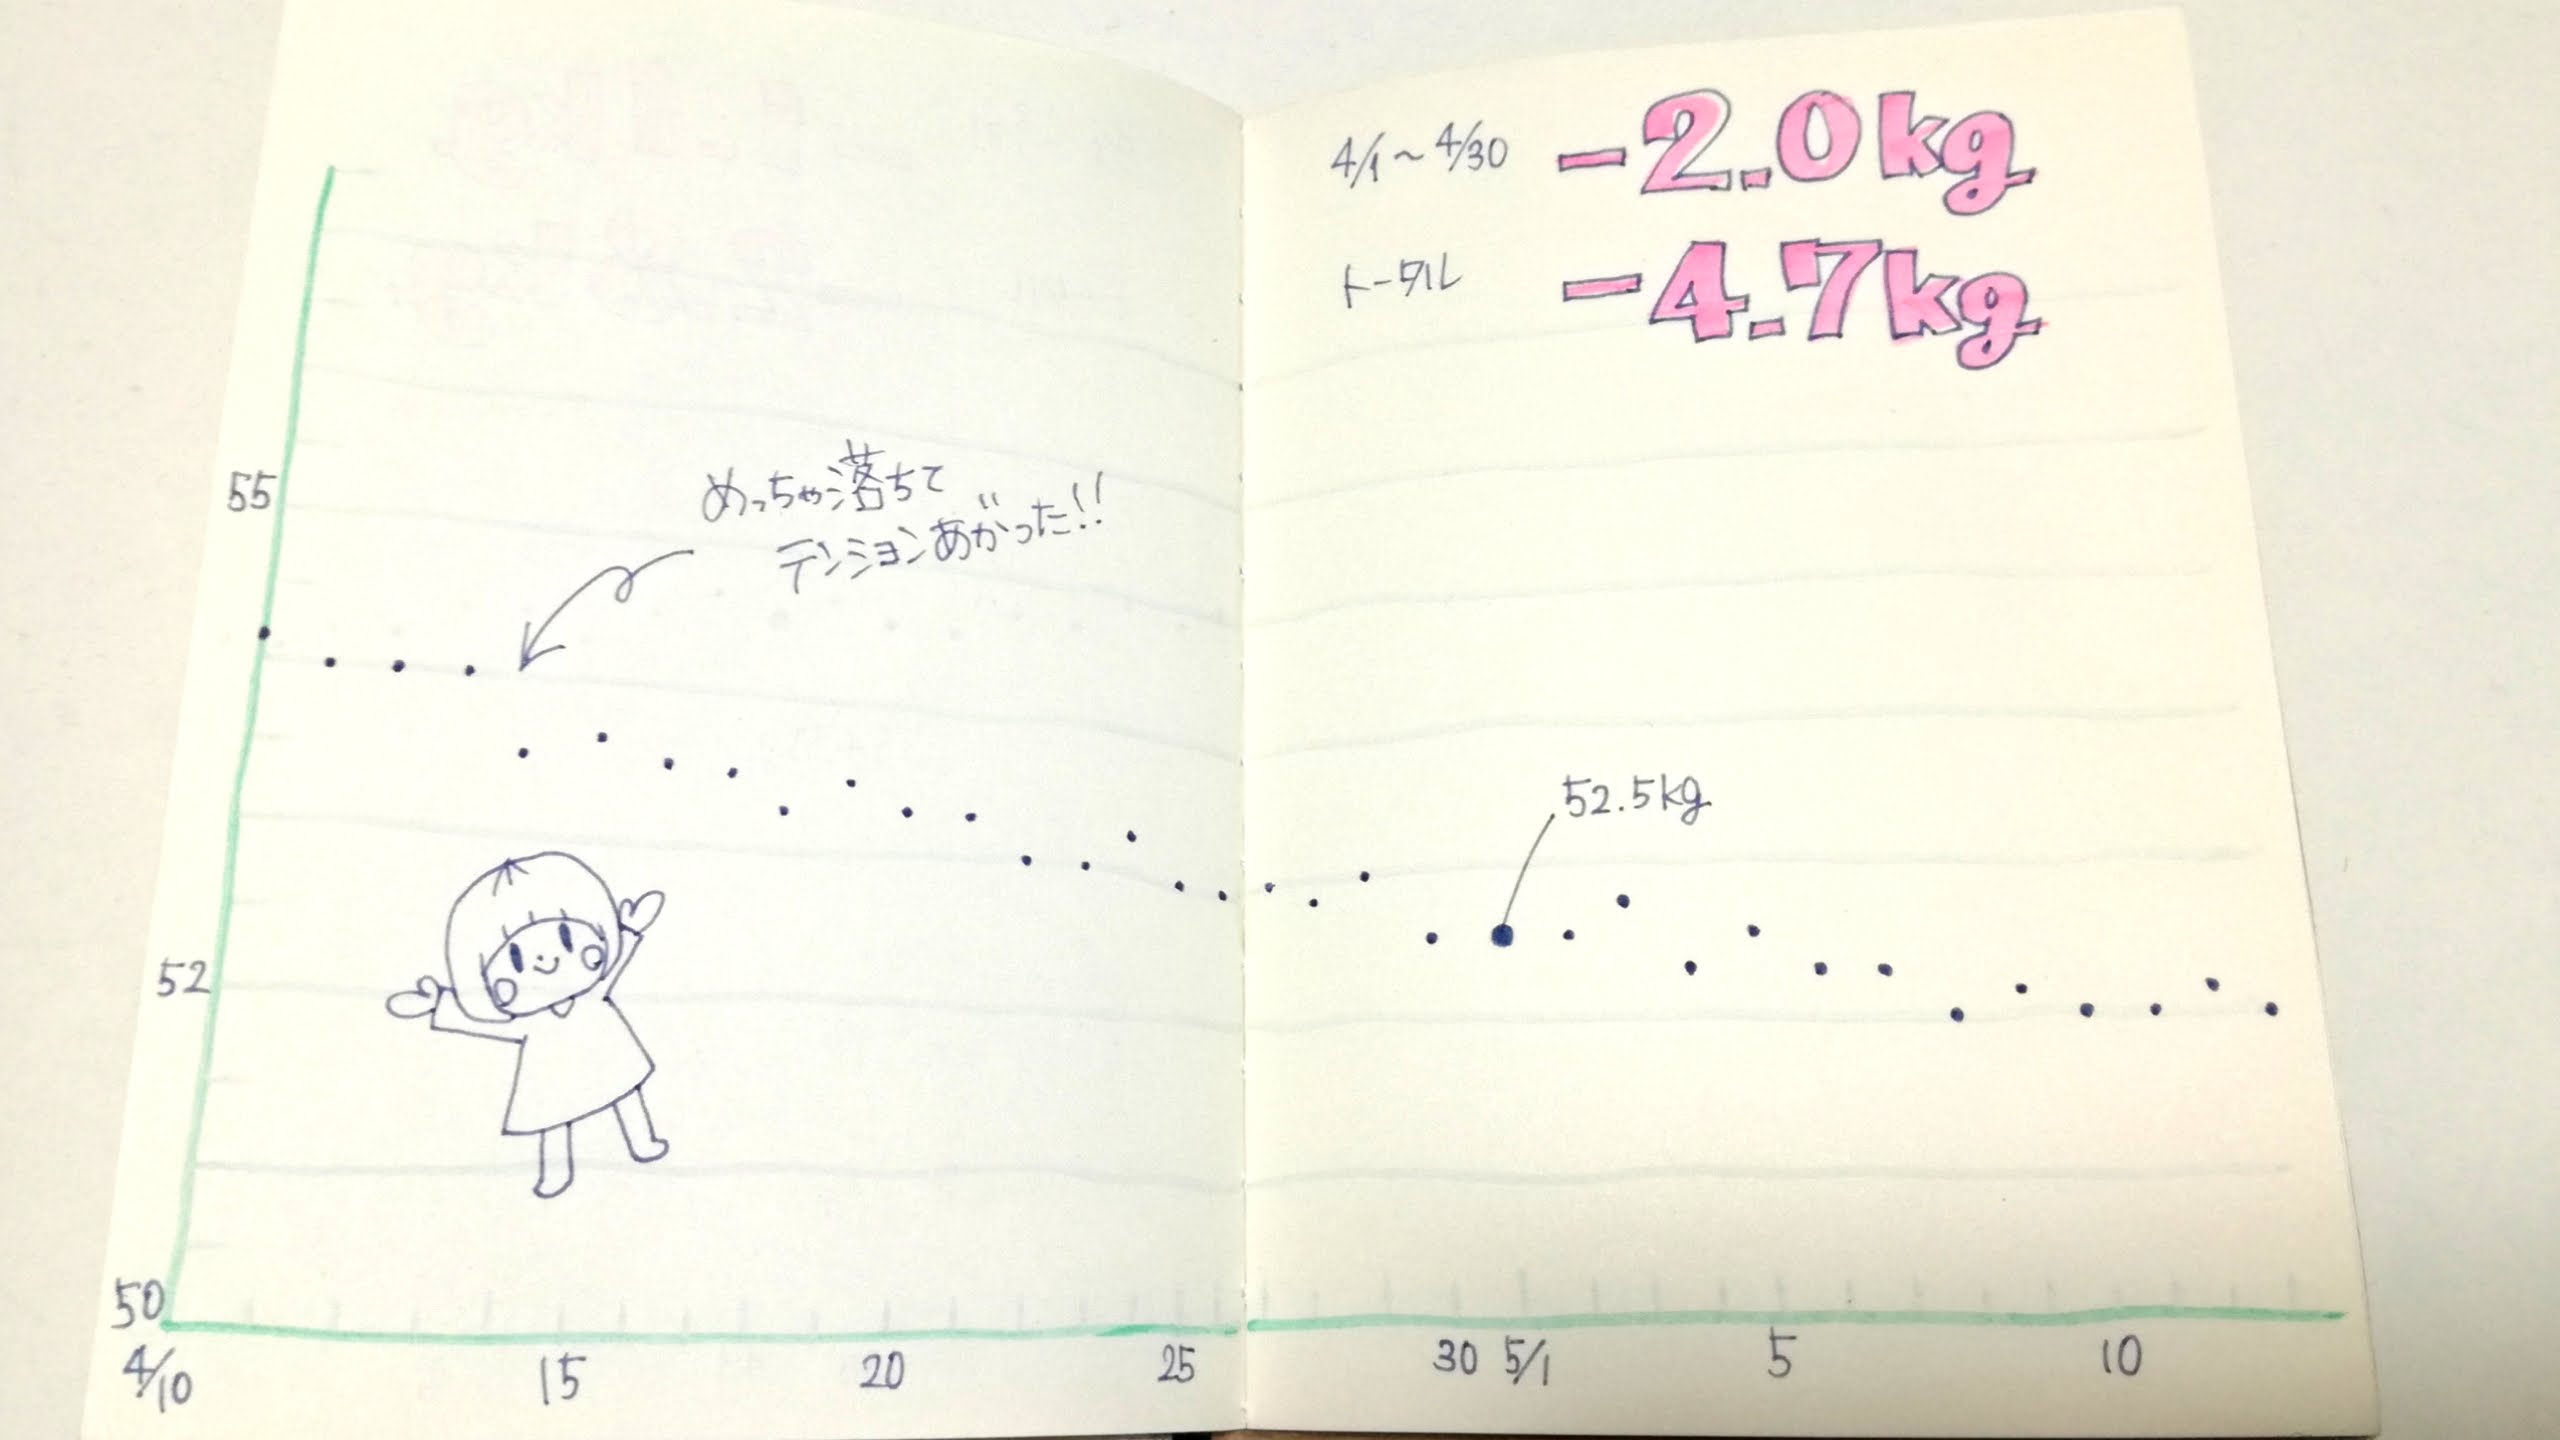 4/1～4/30 -2.0kg
トータル -4.7kg
55
めっちゃ落ちて
テンションあがった!!
52.5kg
52
50
4/10 15 20 25 30 5/1 5 10